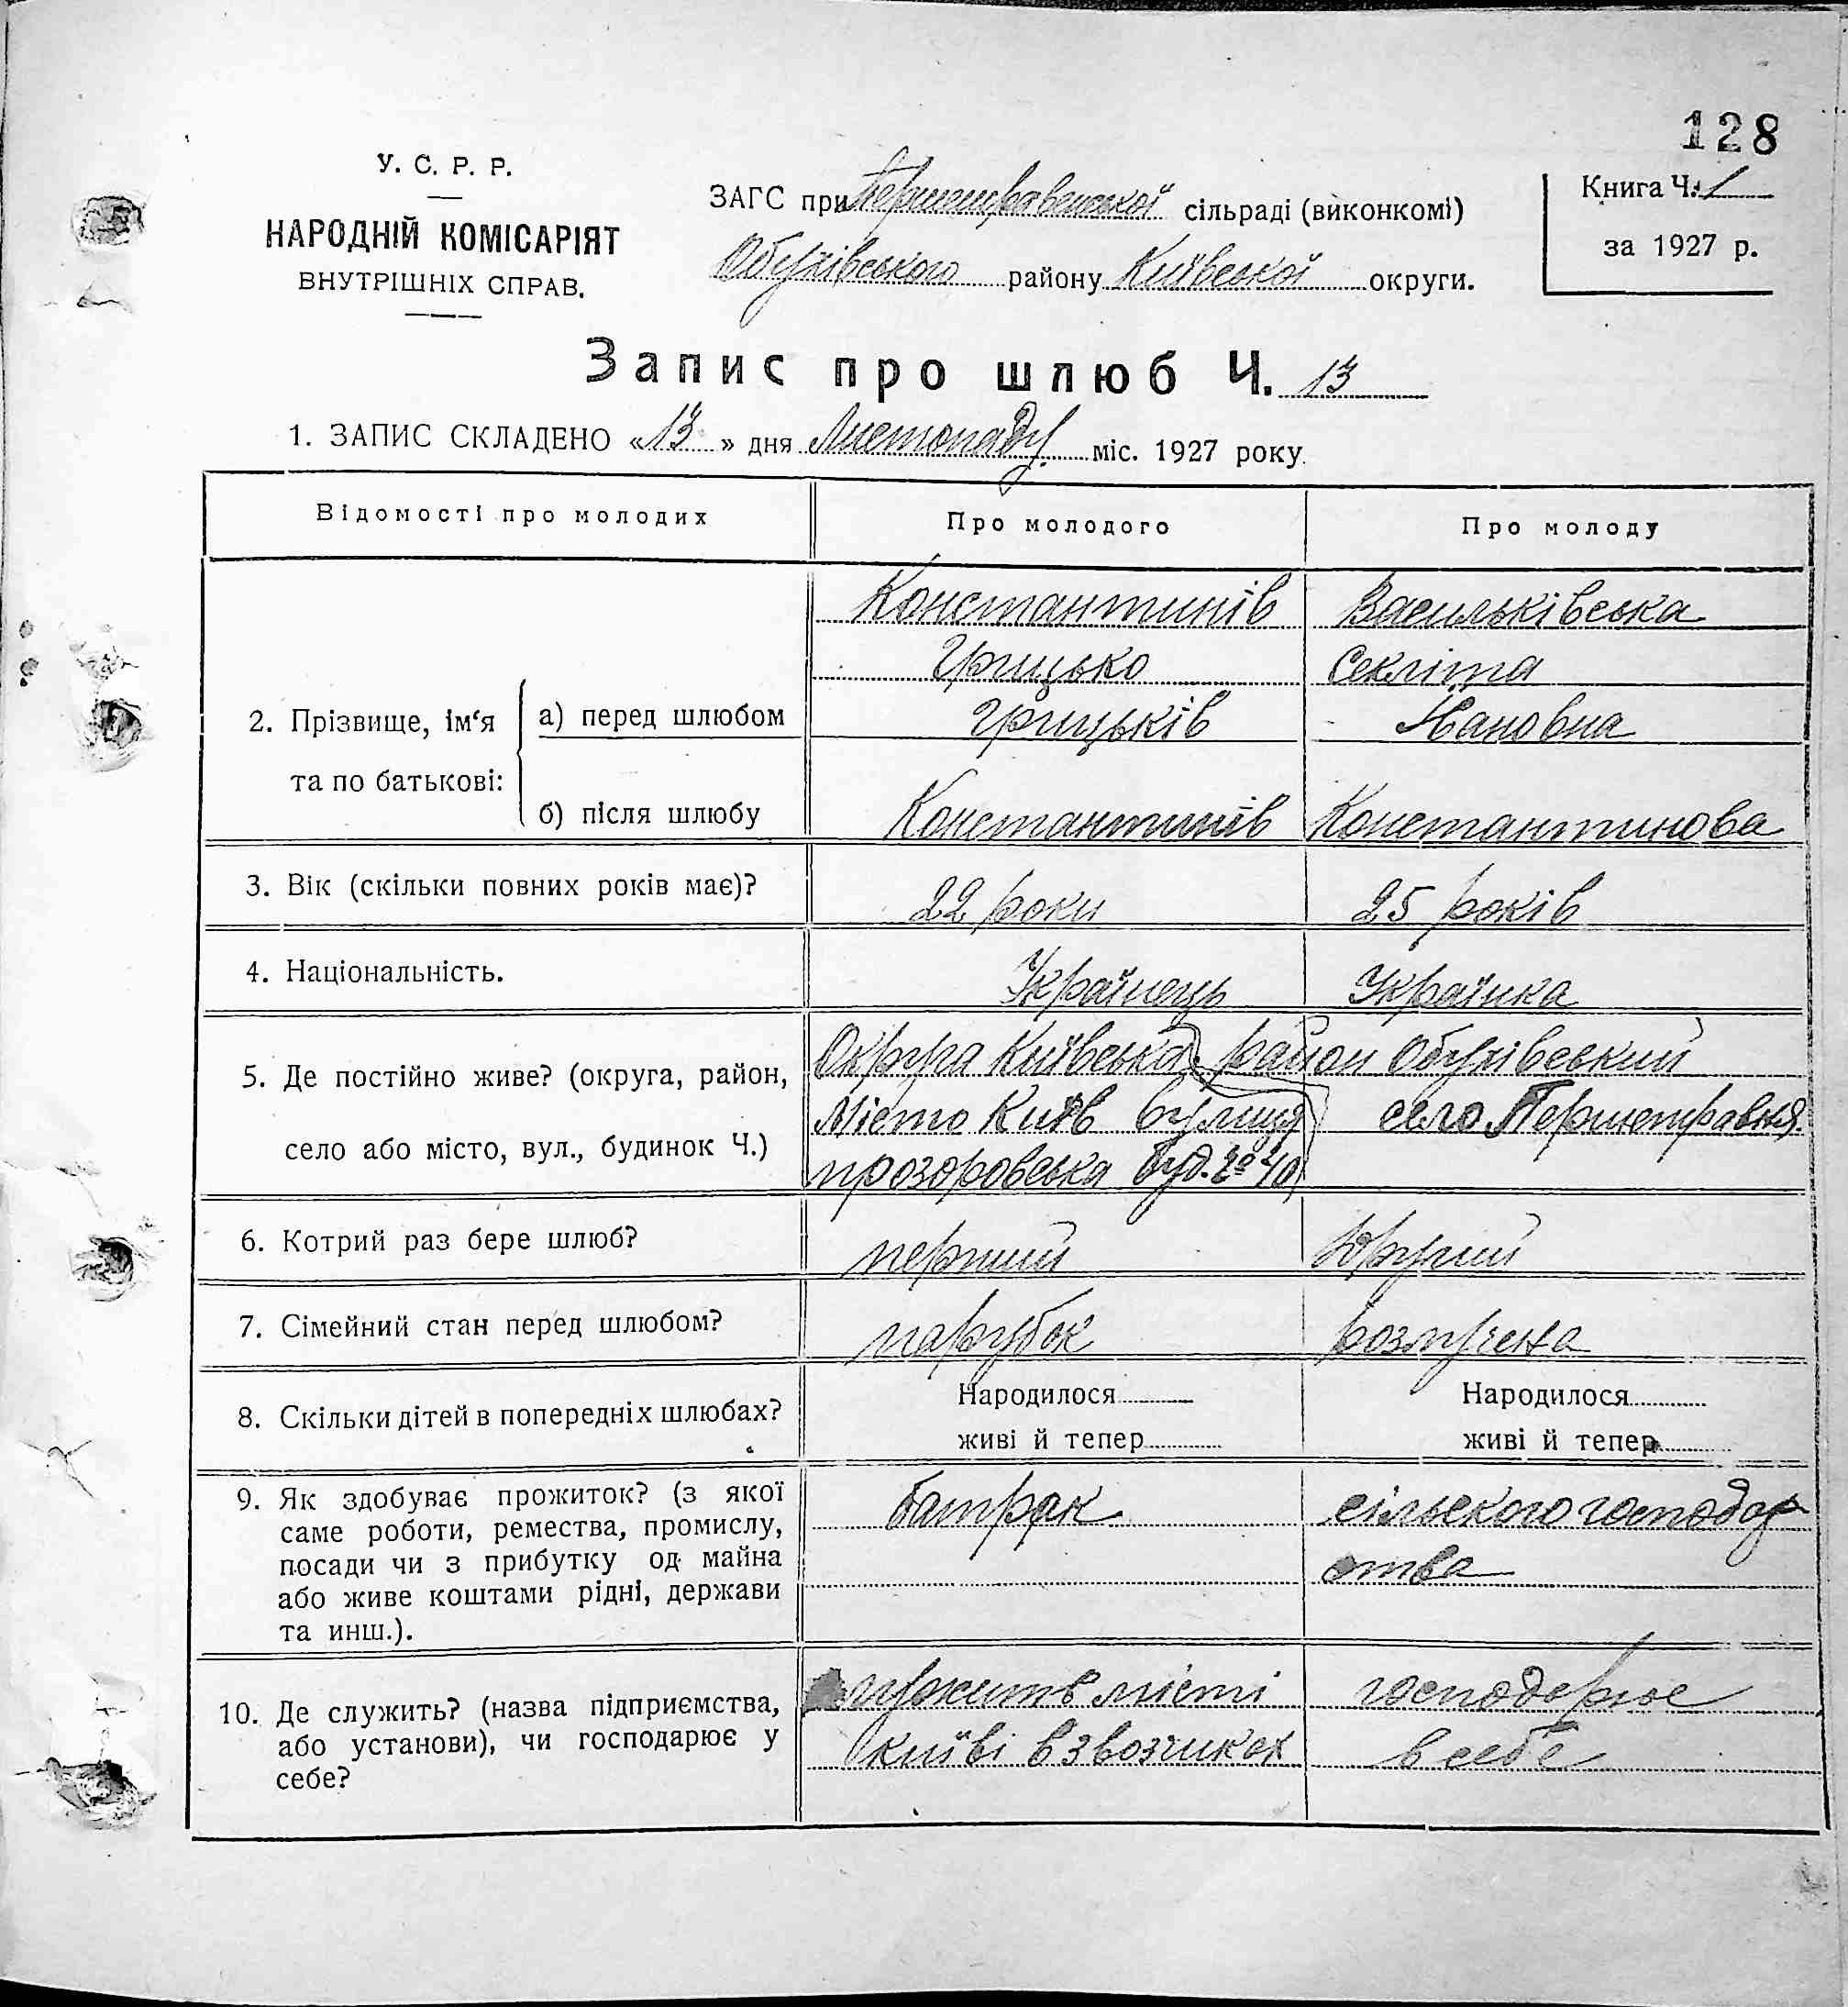 128
У. С. Р. Р.
НАРОДНІЙ КОМІСАРІЯТ
ВНУТРІШНІХ СПРАВ.
ЗАГС при Першетравенської сільраді (виконкомі)
Обухівського району Київської округи.
Книга Ч. 1
за 1927 р.
Запис про шлюб Ч. 13
1. ЗАПИС СКЛАДЕНО «13» дня Листопаду міс. 1927 року
Відомості про молодих
Про молодого
Про молоду
2. Прізвище, ім‘я та по батькові:
а) перед шлюбом
Константинів
Грицько
Грицьків
Васильківська
Секліта
Йановна
б) після шлюбу
Константинів
Константинова
3. Вік (скільки повних років має)?
22 роки
25 років
4. Національність.
Українець
Українка
5. Де постійно живе? (округа, район,
село або місто, вул., будинок Ч.)
Округа Київська район Обухівський
Місто Київ вулиця
прозоровська буд. № 10
село Першетравня
6. Котрий раз бере шлюб?
перший
другий
7. Сімейний стан перед шлюбом?
парубок
розлучена
8. Скільки дітей в попередніх шлюбах?
Народилося
живі й тепер
Народилося
живі й тепер
9. Як здобуває прожиток? (з якої
саме роботи, ремества, промислу,
посади чи з прибутку од майна
або живе коштами рідні, держави
та инш.).
батрак
сільского господар
ства
10. Де служить? (назва підприємства,
або установи), чи господарює у
себе?
служить в місті
київі в звозчиках
господорює
в себе